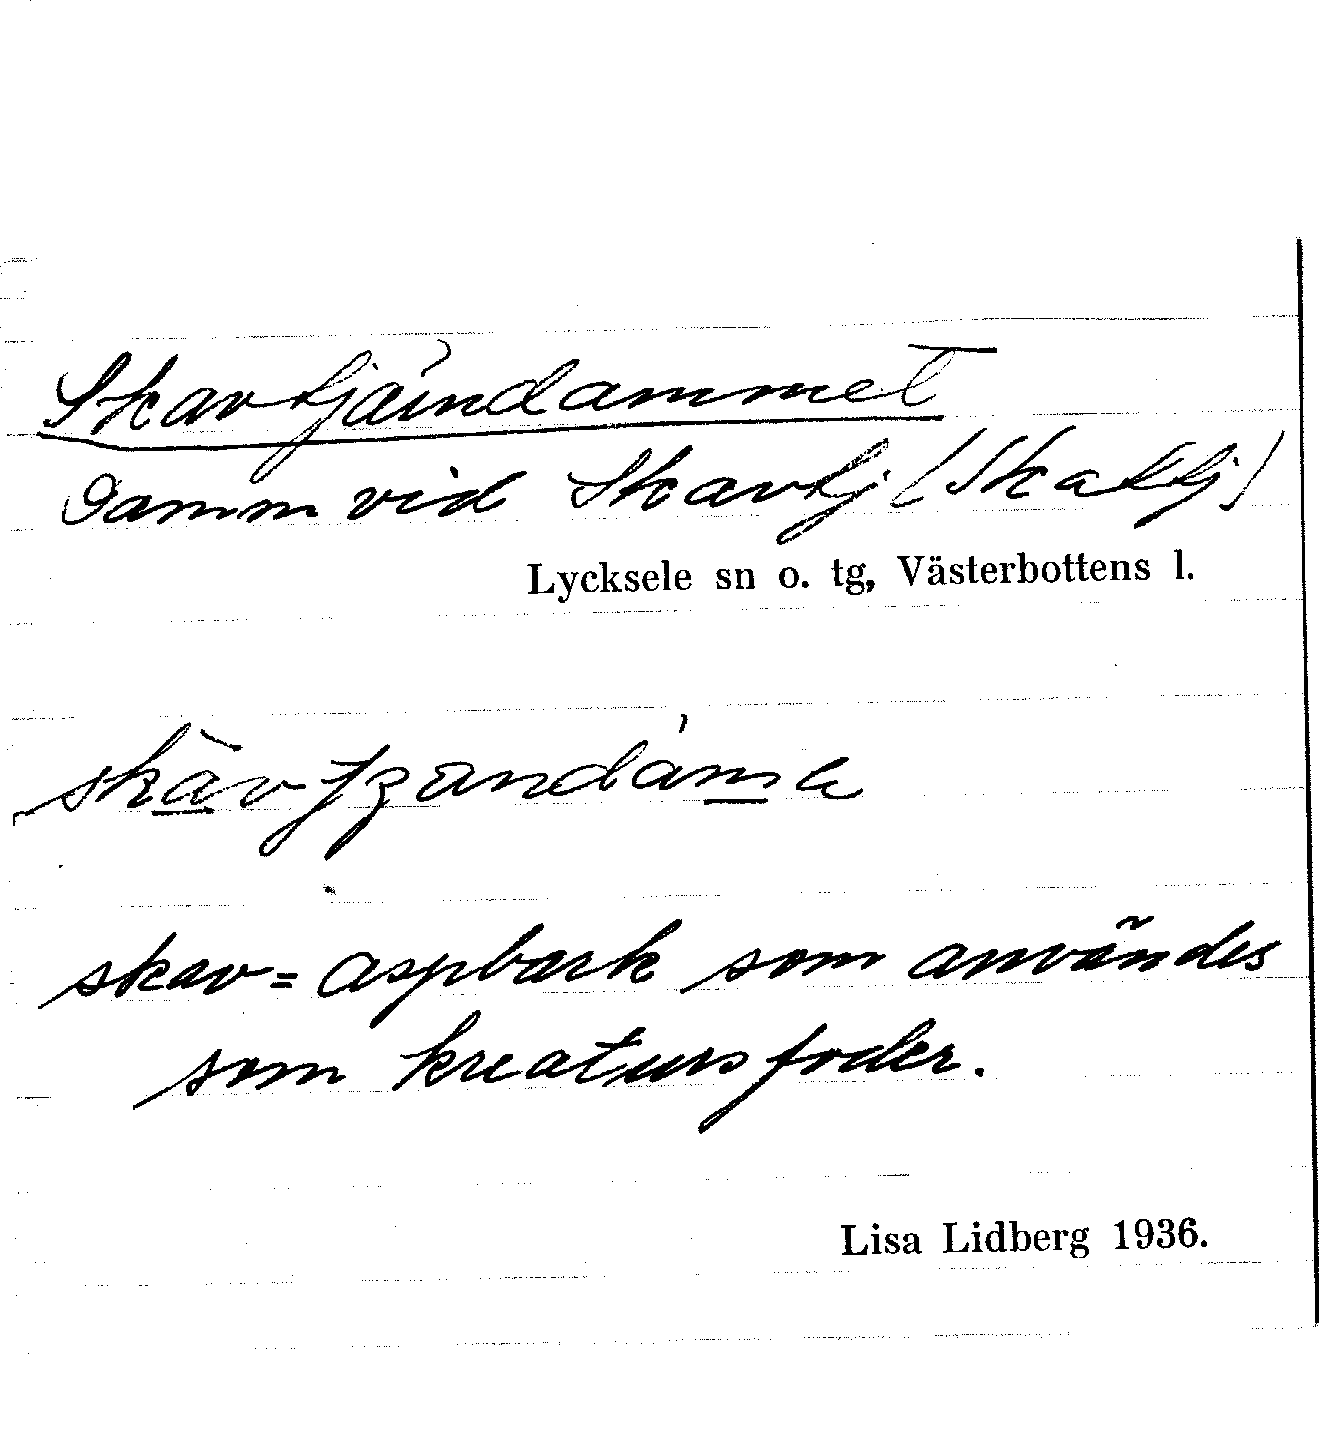 Skavtjärndammet
Damm vid Skavtj (Skattj)
Lycksele sn o. tg, Västerbottens l.
skav = aspbark som användes
som kreatursfoder.
Lisa Lidberg 1936.